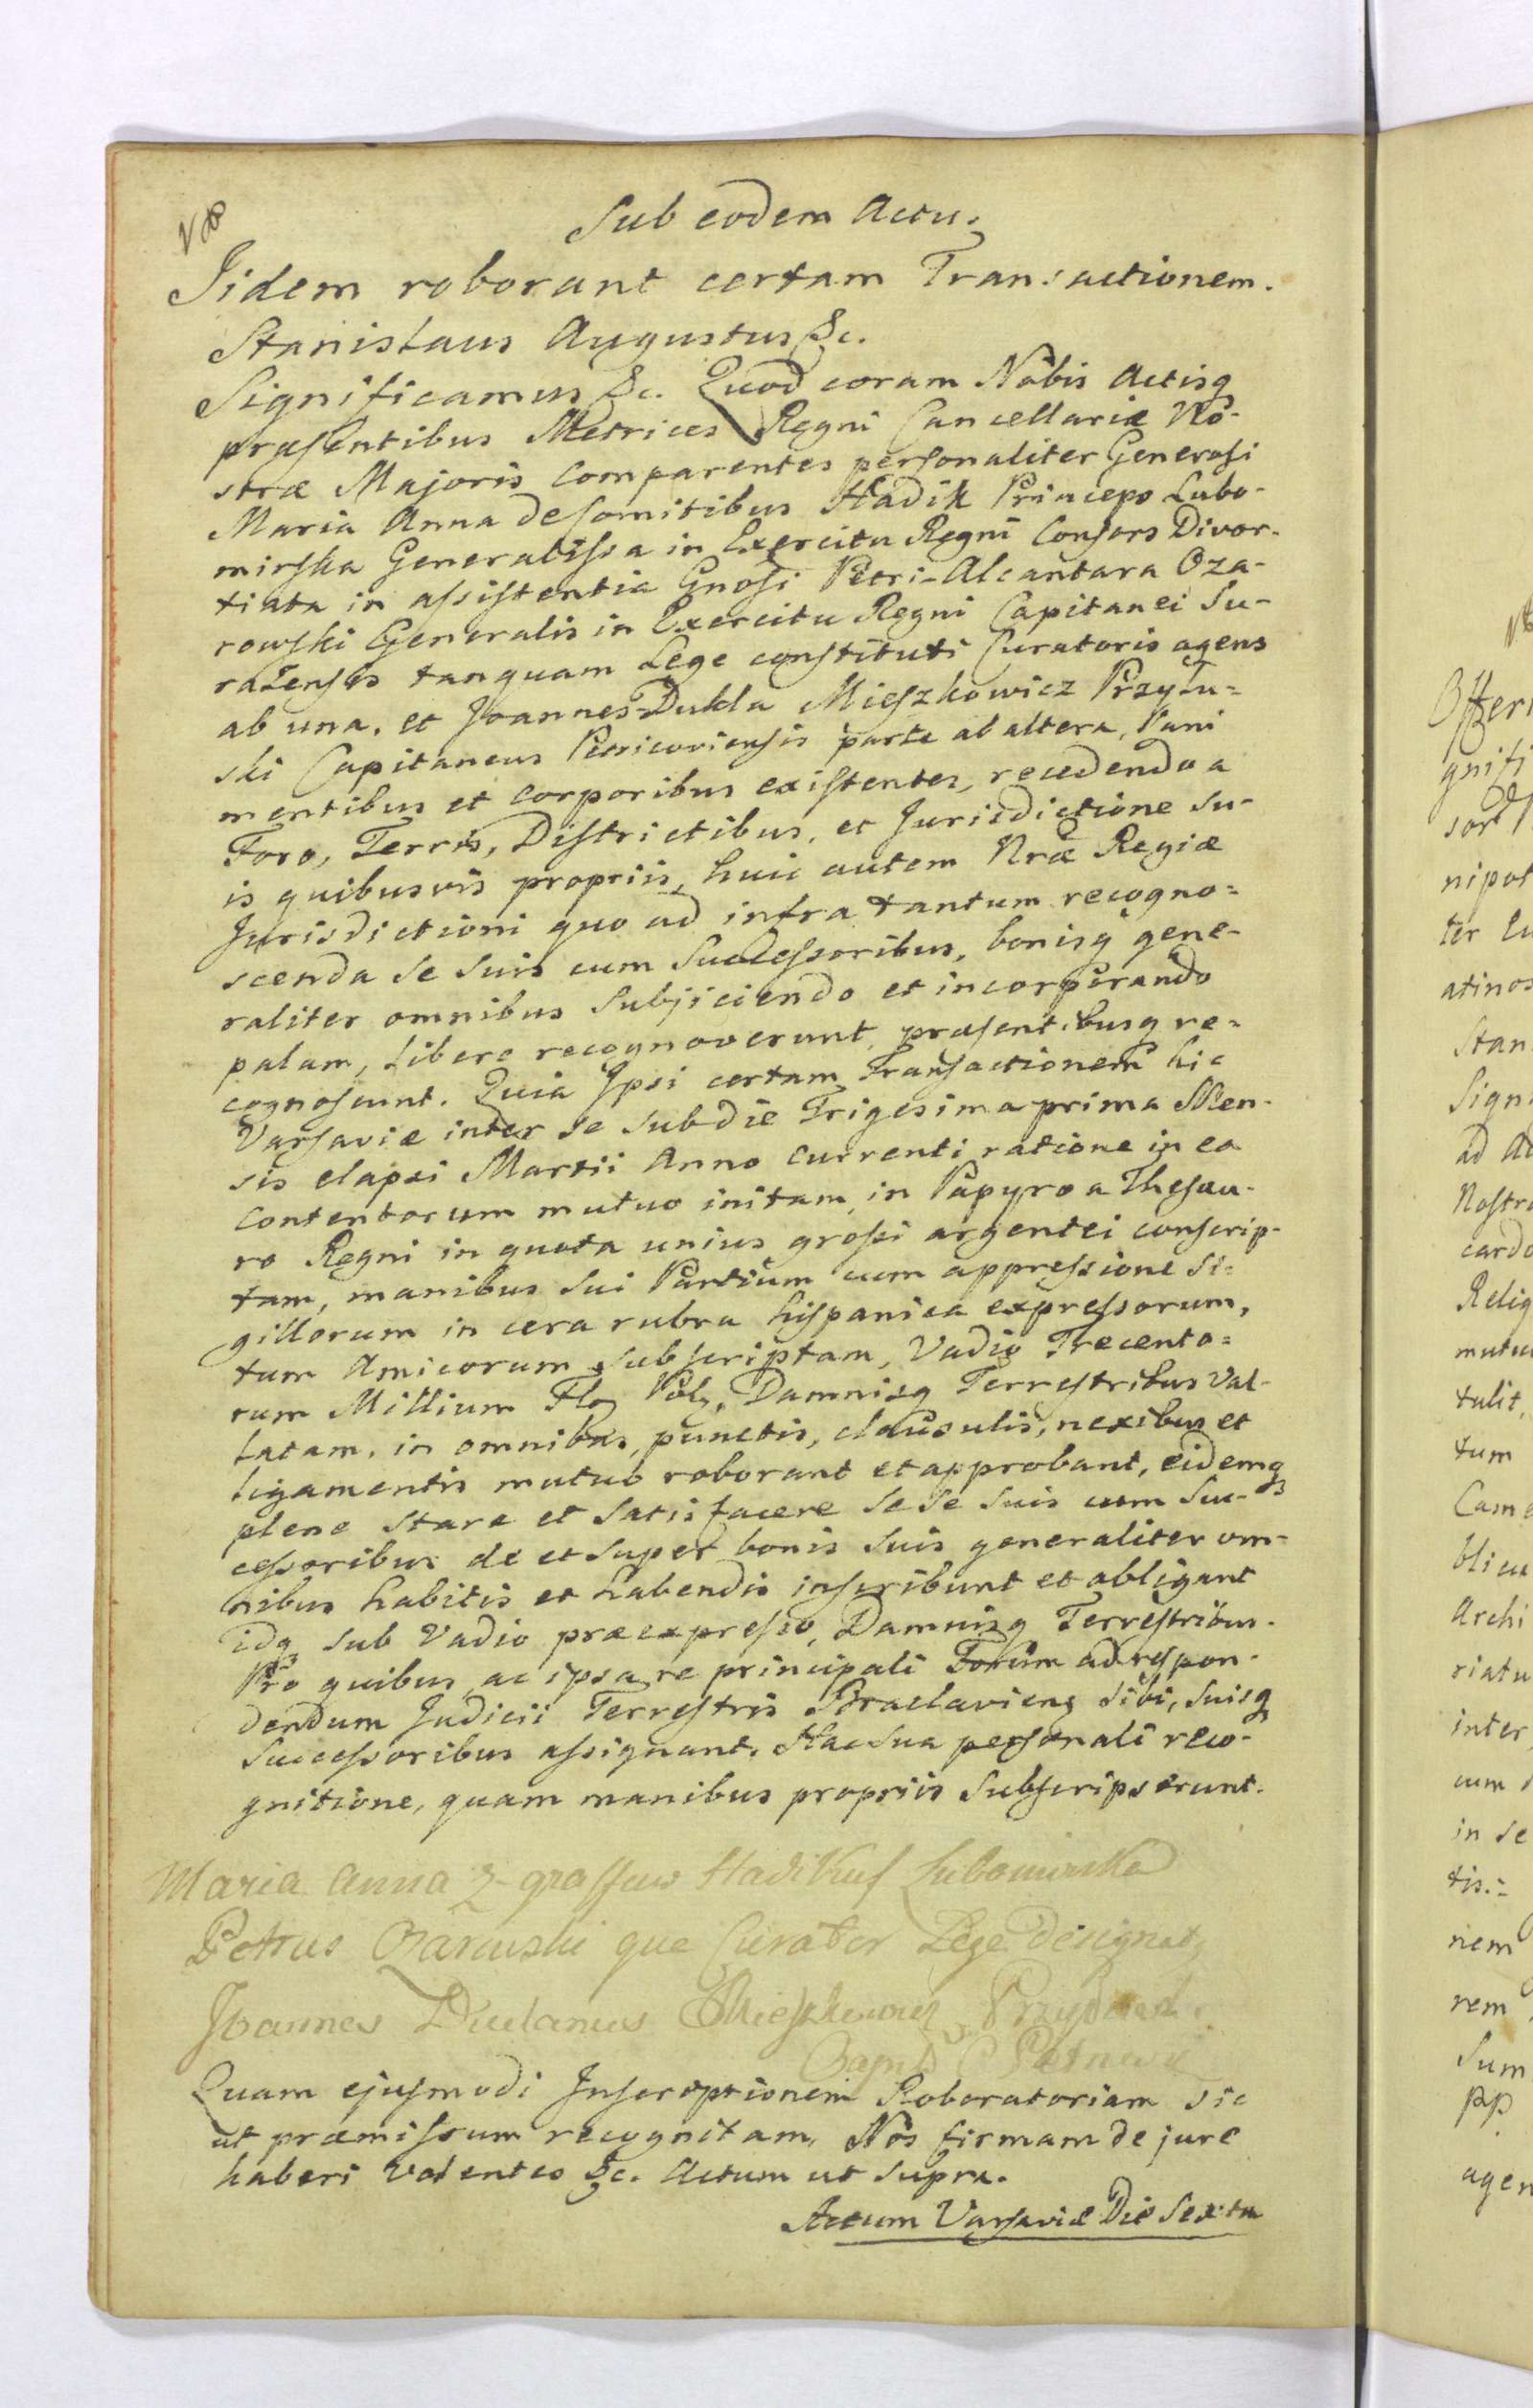 Sub eodem Actu.
Jidem roborant certam Transactionem.
Stanislaus Augustus &c.
Significamus &c. Quod coram Nobis Actisq
præsentibus Metrices Regni Cancellariæ No-
stræ Majoris Comparentes personaliter Generosi
Maria Anna de Comitibus Hadik Princeps Lubo-
mirska Generalissa in Exercitu Regni Consors Divor-
tiata in assistentia Gnosi Petri-Alcantara Oza-
rowski Generalis in Exercitu Regni Capitanei Su-
rażensis tanquam Lege constituti Curatoris agens
ab una, et Joannes-Dukla Mieszkowicz Przyłu-
ski Capitaneus Petricoviensis parte ab altera, Sani
mentibus et corporibus existentes, recedendo a
Foro, Terris, Districtibus, et Jurisdictione su-
is quibusvis propriis, huic autem Nræ Regiæ
Jurisdictioni quo ad infra tantum recogno-
scenda se suis cum Successoribus, bonisq gene-
raliter omnibus Subjiciendo et incorporando
palam, libere recognoverunt, præsentibusq re-
cognoscunt. Quia Ipsi certam Transactionem hic
Varsaviæ inter se sub die Trigesima prima Men-
sis elapsi Martii Anno currenti ratione in ea
Contentorum mutuo initam, in Papyro a Thesau-
ro Regni in quota unius grossi argentei conscrip-
tam, manibus Sui Partium cum appressione Si-
gillorum in cera rubra hispanica expressorum,
tum Amicorum subscriptam, Vadio Trecento-
rum Millium Flo Pol, Damnisq Terrestribus Val-
latam, in omnibus, punctis, clausulis, nexibus et
ligamentis mutuo roborant et approbant, eidemq
plene stare et satisfacere se se suis cum Suc-
cessoribus de et super bonis suis generaliter om-
nibus habitis et habendis inscribunt et obligant
idq sub Vadio præexpresso, Damnisq Terrestribus.
Pro quibus, ac ipsa re principali Forum ad respon-
dendum Judicii Terrestris Braclaviens sibi, suisq
Successoribus assignant. Hac sua personali reco-
gnitione, quam manibus propriis Subscripserunt.
Maria Anna z Lubomirska
Petrus Ozarowski que Curator Lege Designat
Joannes Duclanus Mieszkowicz
Quam ejusmodi Inscriptionem Roboratoriam sic
ut præmissum recognitam, Nos firmam de jure
haberi Volentes &c. Actum ut supra.
Actum Varsaviæ Die Sexta